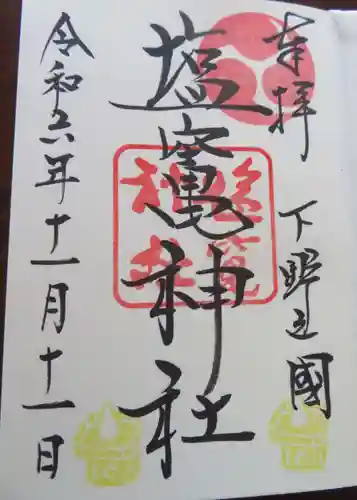 奉拝
下野之國
塩竈神社
塩竈神社
令和六年十一月十一日